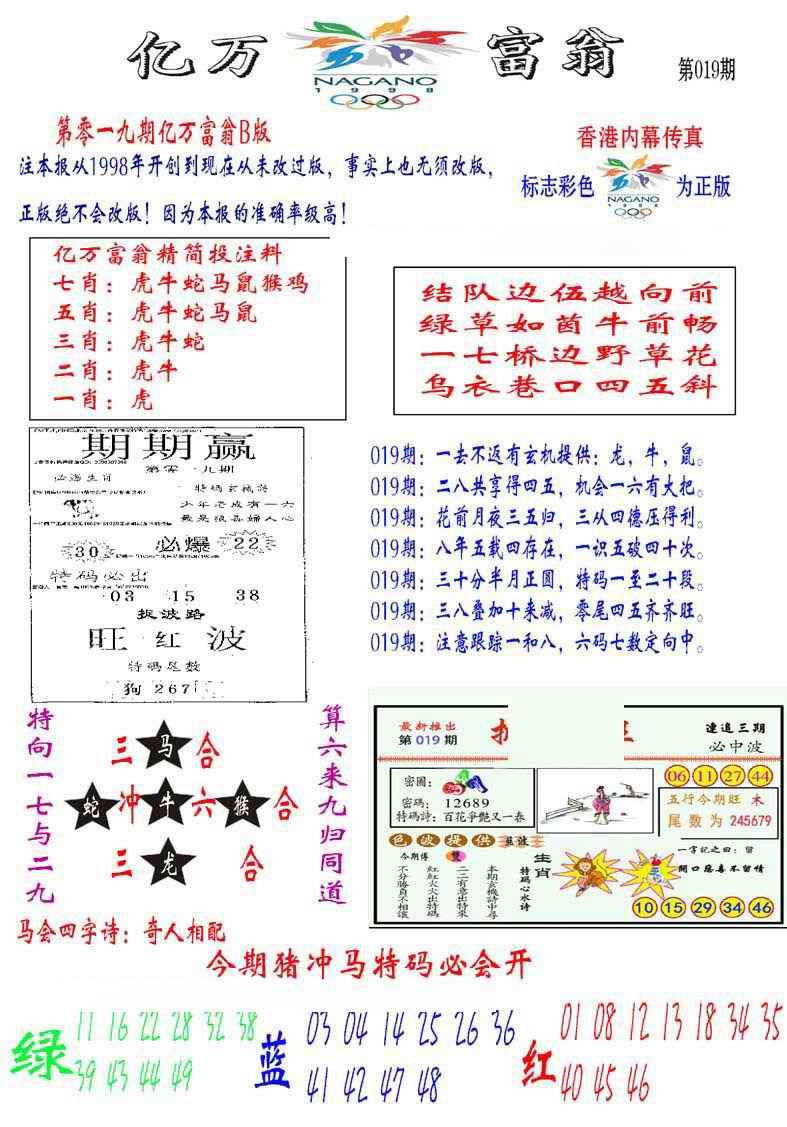 亿万富翁
NAGANO
1998
第019期
第零一九期亿万富翁B版
注本报从1998年开创到现在从未改过版，事实上也无须改版，
正版绝不会改版！因为本报的准确率级高！
香港内幕传真
标志彩色
NAGANO
为正版
亿万富翁精简投注料
七肖：虎牛蛇马鼠猴鸡
五肖：虎牛蛇马鼠
三肖：虎牛蛇
二肖：虎牛
一肖：虎
结队边伍越向前
绿草如茵牛前畅
一七桥边野草花
乌衣巷口四五斜
期期赢
第零一九期
必选生肖
特码玄机诗
少年老成有一六
最是狼县婦人心
30
必爆
22
特码必出
03 15 38
捉波路
旺红波
特码尾数
狗267
019期：一去不返有玄机提供：龙，牛，鼠。
019期：二八共享得四五，机会一六有大把。
019期：花前月夜三五归，三从四德压得利。
019期：八年五载四存在，一识五破四十次。
019期：三十分半月正圆，特码一至二十段。
019期：三八叠加十来减，零尾四五齐齐旺。
019期：注意跟踪一和八，六码七数定向中。
特向一七与二九
三马合
蛇冲牛六猴合
三龙合
算六来九归同道
最新推出
第019期
速追三期
必中波
密圖：
密碼：12689
特碼詩：百花爭艷又一春
06 11 27 44
五行今期旺 木
尾数为 245679
色波提供
蓝波
今期博
雙
不分勝負不相讓
紅紅火火出特碼
二二有意出特采
本期玄機詩中尋
特码心水诗
生肖
一字記之曰：留
開口惡毒不留情
10 15 29 34 46
马会四字诗：奇人相配
今期猪冲马特码必会开
绿
11 16 22 28 32 38
39 43 44 49
蓝
03 04 14 25 26 36
41 42 47 48
红
01 08 12 13 18 34 35
40 45 46